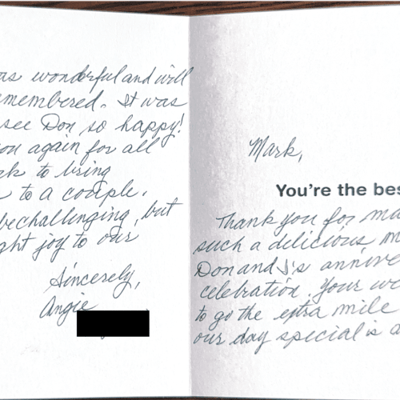 as wonderful and will
emembered. It was
see Don so happy!
ou again for all
k to bring
to a couple.
be challenging, but
ght joy to our
Sincerely,
Angie
Mark,
You're the bes
Thank you for ma
such a delicious m
Don and I's annive
celebration. Your w
to go the extra mile
our day special is a